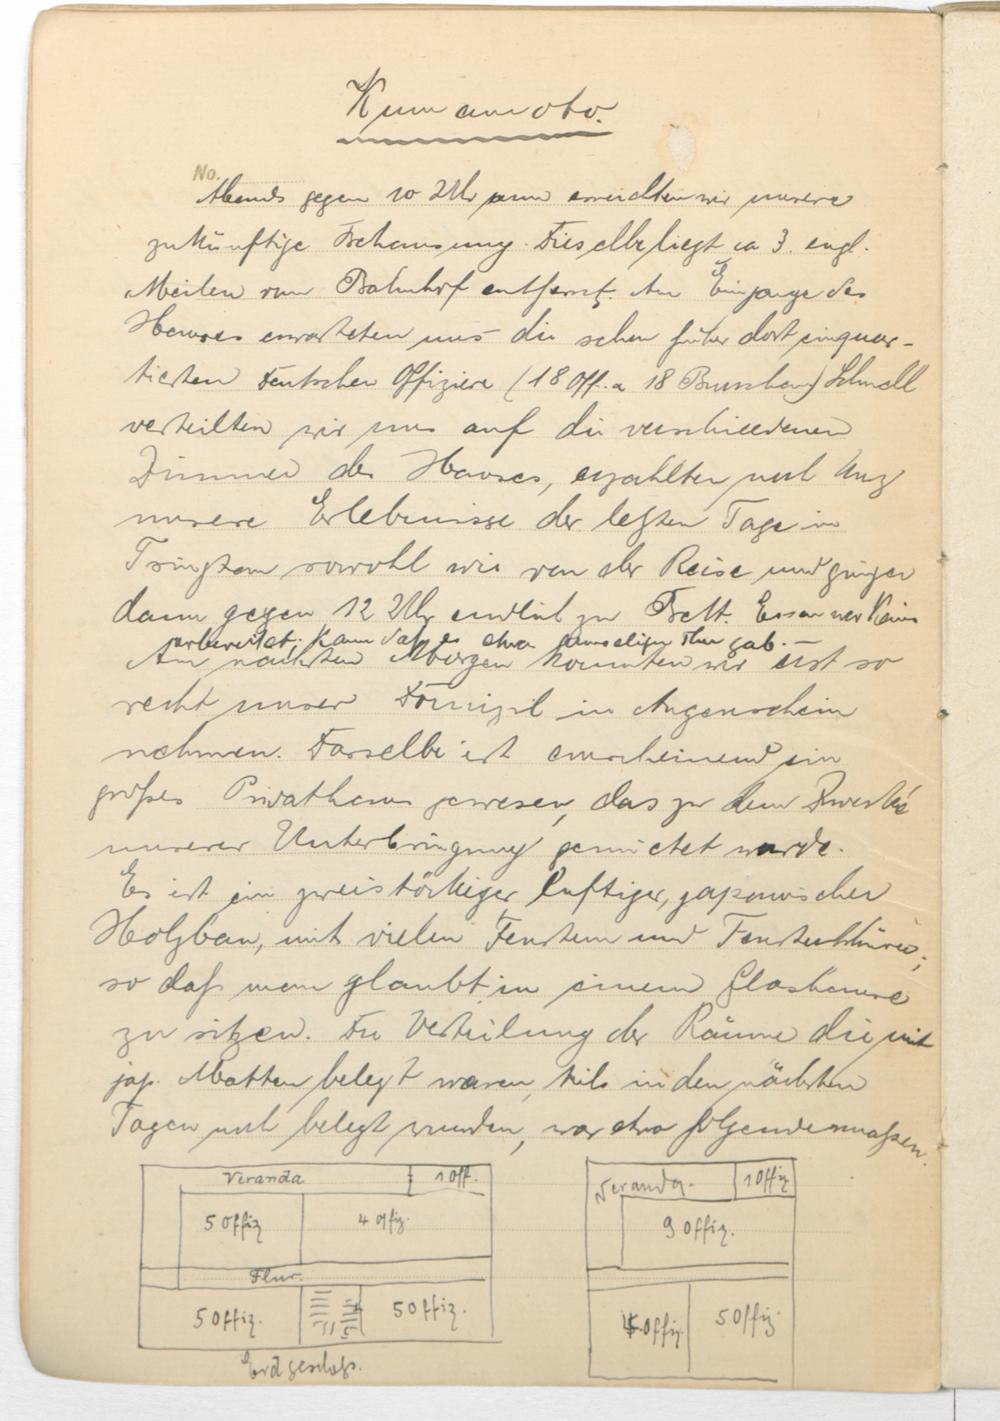 Kumamoto.
No.
Abends gegen 10 Uhr erreichten wir unsere
zukünftige Behausung. Dieselbe liegt ca 3. engl.
Meilen vom Bahnhof entfernt. Am Eingange des
Hauses erwarteten uns die schon früher dort einquar-
tierten deutschen Offiziere (18 Off. u 18 Burschen) Schnell
verteilten wir uns auf die verschiedenen
Zimmer des Hauses, erzählten noch kurz
unsere Erlebnisse der letzten Tage in
Tsingtau sowohl wie von der Reise und gingen
dann gegen 12 Uhr endlich zu Bett. Essen war keins
vorbereitet, kaum daß es etwas Thee gab. —
Am nächsten Morgen konnten wir erst so
recht unser Domizil in Augenschein
nehmen. Dasselbe ist anscheinend ein
großes Privathaus gewesen, das zu dem Zwecke
unserer Unterbringung gemietet wurde.
Es ist ein zweistöckiger luftiger, japanischer
Holzbau, mit vielen Fenstern und Fensterthüren,
so daß man glaubt in einem Glashause
zu sitzen. Die Verteilung der Räume die mit
jap. Matten belegt waren, teils in den nächsten
Tagen noch belegt wurden, war etwa folgendermaßen.
Veranda
1 Off.
5 Offiz
4 Offiz.
Flur.
5 Offiz.
5 Offiz.
Erdgeschoß.
Veranda.
1 Offiz
9 Offiz.
Offiz.
5 Offiz.